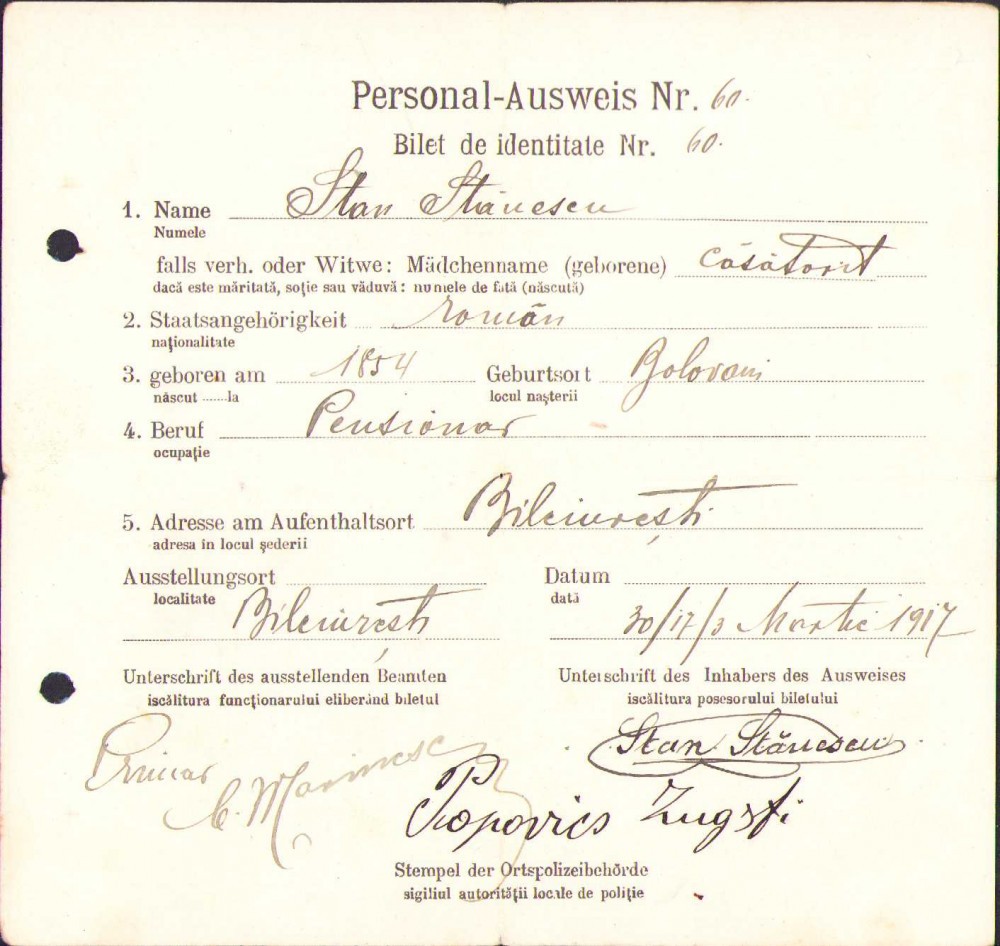 Personal-Ausweis Nr. 60.
Bilet de identitate Nr. 60.
1. Name Stan Stănescu
Numele
falls verh. oder Witwe: Mädchenname (geborene) căsătorit
dacă este măritată, soție sau văduvă: numele de fată (născută)
2. Staatsangehörigkeit român
naționalitate
3. geboren am 1854 Geburtsort Bolovani
născut ......la locul nașterii
4. Beruf Pensionar
ocupație
5. Adresse am Aufenthaltsort Bilciurești
adresa în locul șederii
Ausstellungsort Datum
localitate Bilciurești dată 30/17/3 Martie 1917
Unterschrift des ausstellenden Beamten Unterschrift des Inhabers des Ausweises
iscălitura funcționarului eliberând biletul iscălitura posesorului biletului
Stan Stănescu
Primar
C. Marinescu
Popovics Zugsf.
Stempel der Ortspolizeibehörde
sigiliul autorității locale de poliție